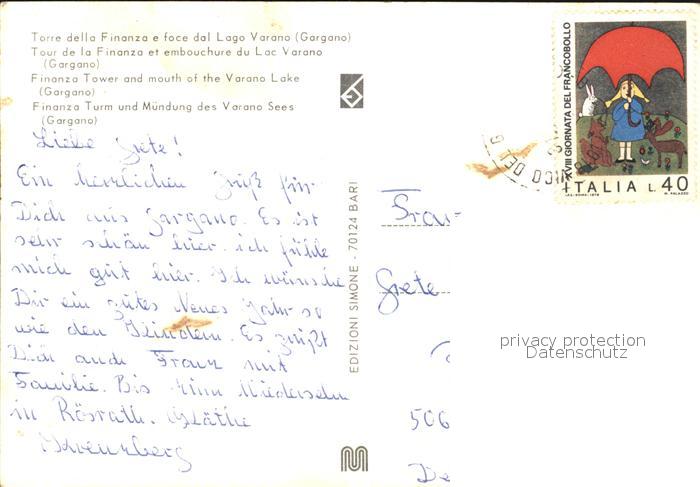 Torre della Finanza e foce dal Lago Varano (Gargano)
Tour de la Finanza et embouchure du Lac Varano
(Gargano)
Finanza Tower and mouth of the Varano Lake
(Gargano)
Finanza Turm und Mündung des Varano Sees
(Gargano)
Liebe Grete!
Ein herzlichen Gruß für
Dich aus Gargano. Es ist
sehr schön hier. ich fühle
mich gut hier. Ich wünsche
Dir ein gutes Neues Jahr so
wie den Kindern. Es grüßt
Dich auch Franz mit
Familie. Bis zum Wiedersehn
in Rösrath. Käthe
Kreuzberg
EDIZIONI SIMONE - 70124 BARI
XVIII GIORNATA DEL FRANCOBOLLO
ITALIA L. 40
Frau
Grete
506
De
privacy protection
Datenschutz